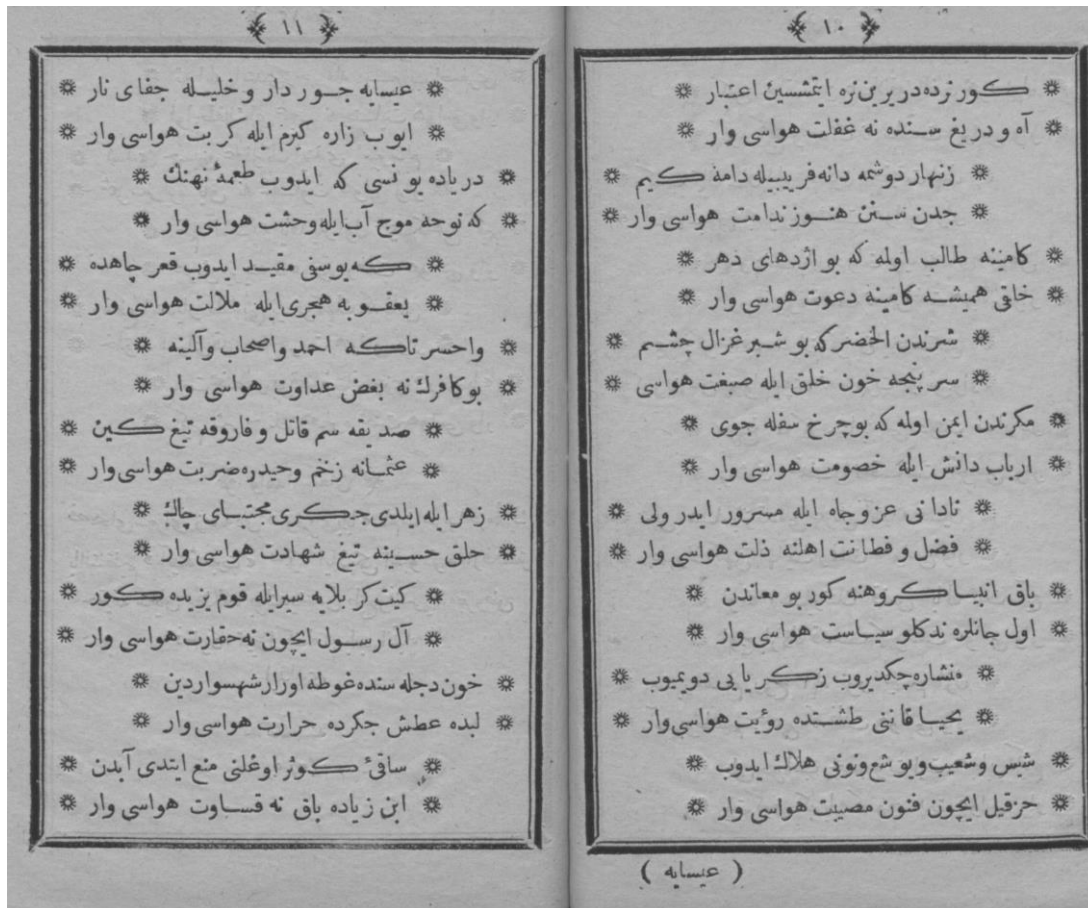 ١٠
كور نرده دريربن نزه ايتمشسين اعتبار
آه و دريغ سنده نه غفلت هواسى وار
زنهار دوشمه دانه فريبيله دامه كيم
جدن سنن هنوز ندامت هواسى وار
كامينه طالب اوله كه بو اژدهاى دهر
خلقى هميشه كامينه دعوت هواسى وار
شرندن الحضر كه بو شير غزال چشم
سر پنجه خون خلق ايله صبغت هواسى
مكرندن ايمن اوله كه بو چرخ سفله جوى
ارباب دانش ايله خصومت هواسى وار
نادانى عز و جاه ايله مسرور ايدر ولى
فضل و فطانت اهلنه ذلت هواسى وار
باق انبيا كروهنه كور بو معاندن
اول جانلره ندكلو سياست هواسى وار
منشاره چكديروب زكريايى دويميوب
يحيا قاننى طشتده رؤيت هواسى وار
شيس وشعيب ويوشع ونونى هلاك ايدوب
حزقيل ايچون فنون مصيبت هواسى وار
( عيسايه )
١١
عيسايه جور دار و خليله جفاى نار
ايوب زاره كرم ايله كربت هواسى وار
درياده يونسى كه ايدوب طعمهٔ نهنك
كه نوحه موج آب ايله وحشت هواسى وار
كه يوسفى مقيد ايدوب قعر چاهده
يعقوبه هجرى ايله ملالت هواسى وار
واحسرتاكه احمد واصحاب وآلينه
بو كافرك نه بغض عداوت هواسى وار
صديقه سم قاتل و فاروقه تيغ كين
عثمانه زخم وحيدره ضربت هواسى وار
زهر ايله ايلدى جكرى مجتباى چاك
حلق حسينه تيغ شهادت هواسى وار
كيت كربلايه سيرايله قوم يزيده كور
آل رسول ايچون نه حقارت هواسى وار
خون دجله سنده غوطه اورار شهسوار دين
لبده عطش جكرده حرارت هواسى وار
ساقئ كوثر اوغلنى منع ايتدى آبدن
ابن زياده باق نه قساوت هواسى وار